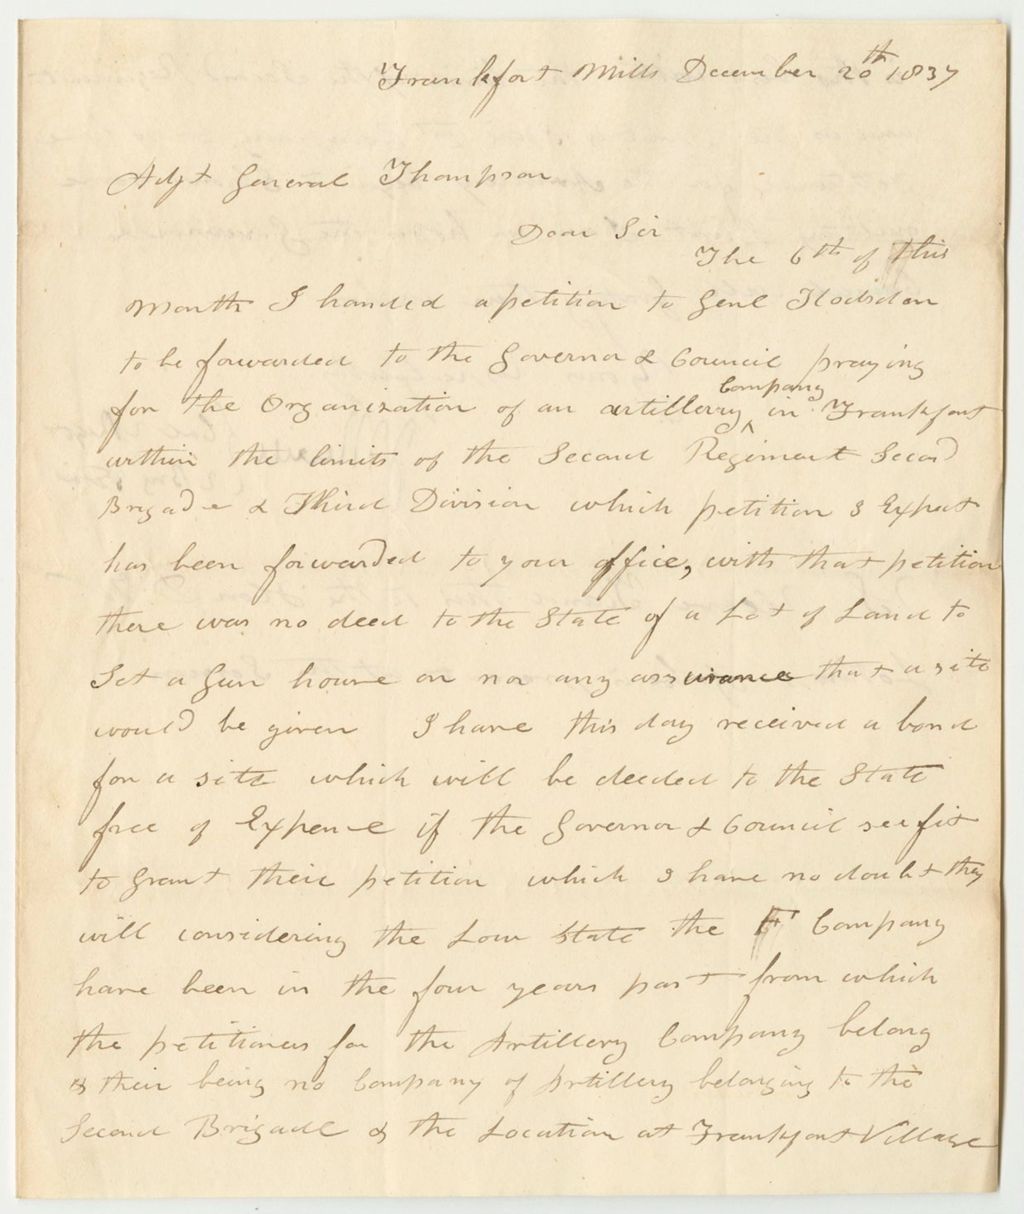 Frankfort Mills December 20th 1837
Adjt General Thompson
Dear Sir
The 6th of this
Month I handed a petition to Genl Hodsdon
to be forwarded to the Governor & Council praying
for the Organization of an artillerry Company in Frankfort
within the limits of the Second Regiment Second
Brigade & Third Division which petition I Expect
has been forwarded to your office, with that petition
there was no deed to the State of a Lot of Land to
Set a Gun house on nor any assurance that a site
would be given I have this day received a bond
for a site which will be deeded to the State
free of Expence if the Governor & Council see fit
to Grant their petition which I have no doubt they
will considering the Low State the F Company
have been in the four years past from which
the petitioners for the Artillery Company belong
& their being no Company of Artillery belonging to the
Second Brigade & the Location at Frankfort Village